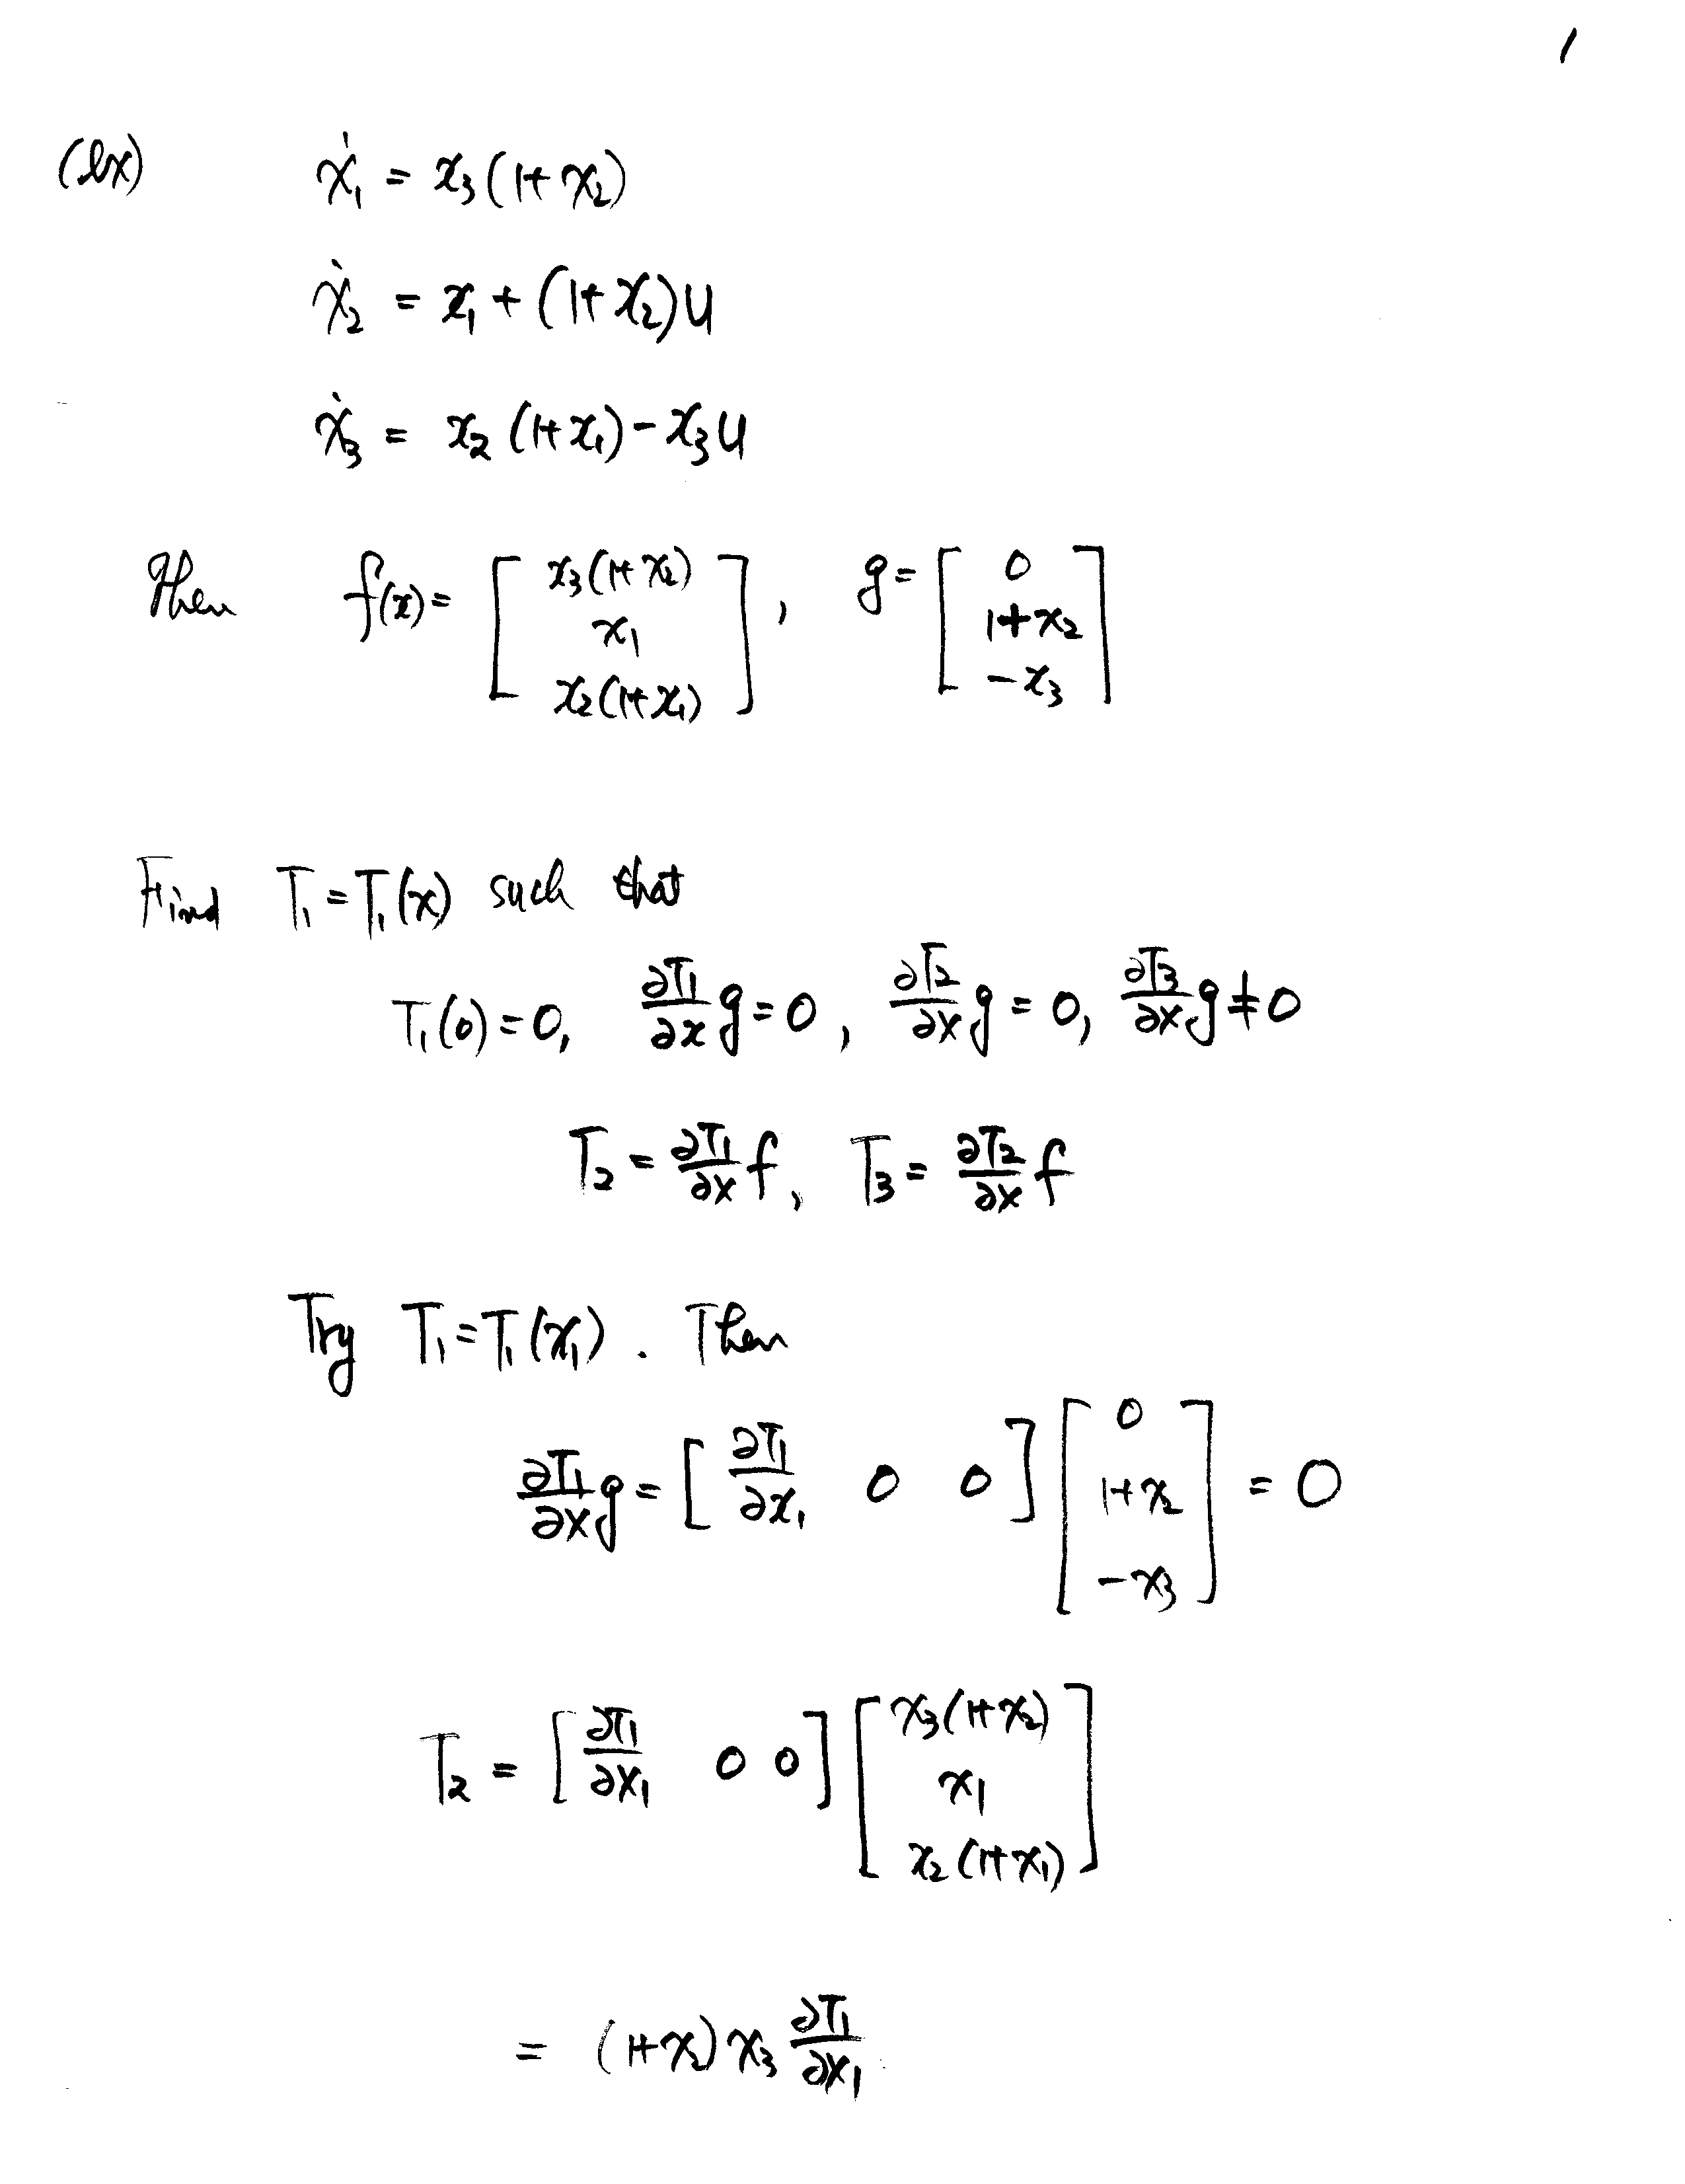 1
(ex) ẋ₁ = x₃(1+x₂)
ẋ₂ = x₁ + (1+x₂)u
ẋ₃ = x₂(1+x₁) - x₃u
Then f(x) = [ x₃(1+x₂) ; x₁ ; x₂(1+x₁) ], g = [ 0 ; 1+x₂ ; -x₃ ]
Find T₁ = T₁(x) such that
T₁(0) = 0, ∂T₁/∂x g = 0, ∂T₂/∂x g = 0, ∂T₃/∂x g ≠ 0
T₂ = ∂T₁/∂x f, T₃ = ∂T₂/∂x f
Try T₁ = T₁(x₁). Then
∂T₁/∂x g = [ ∂T₁/∂x₁ 0 0 ] [ 0 ; 1+x₂ ; -x₃ ] = 0
T₂ = [ ∂T₁/∂x₁ 0 0 ] [ x₃(1+x₂) ; x₁ ; x₂(1+x₁) ]
= (1+x₂) x₃ ∂T₁/∂x₁